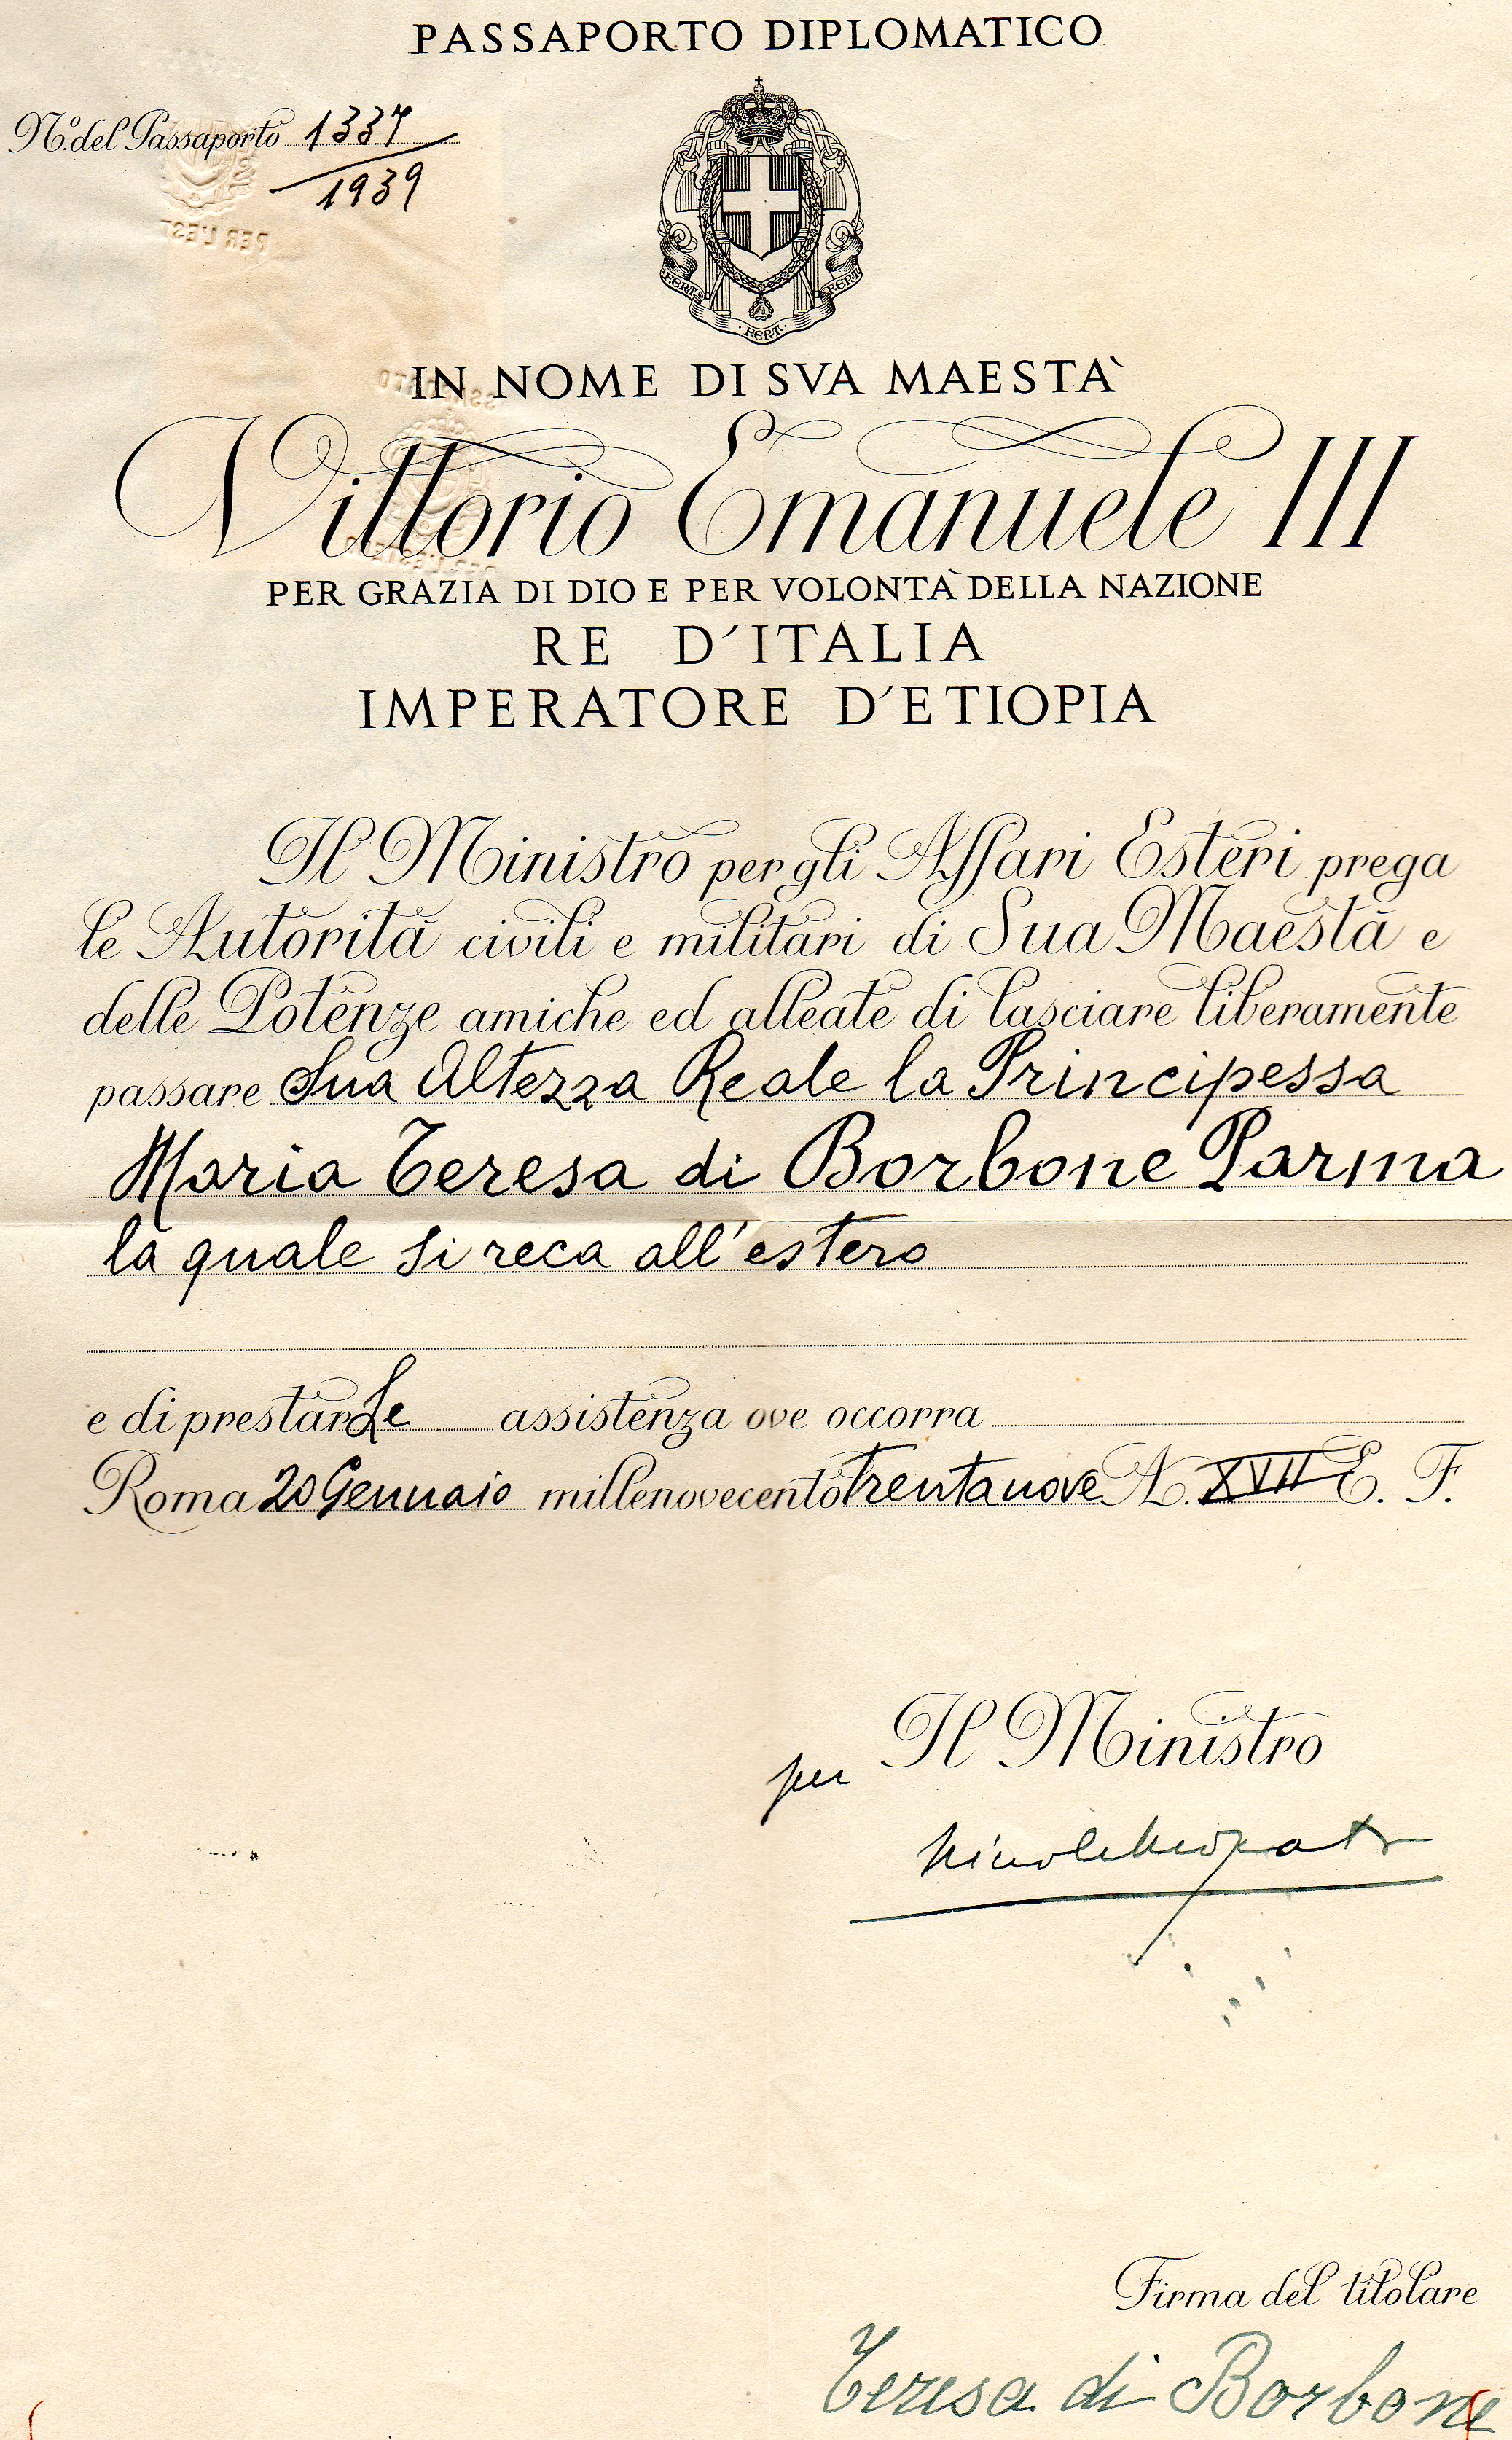 PASSAPORTO DIPLOMATICO
No. del Passaporto 1337
1939
FERT FERT
FERT
IN NOME DI SVA MAESTA`
Vittorio Emanuele III
PER GRAZIA DI DIO E PER VOLONTA` DELLA NAZIONE
RE D'ITALIA
IMPERATORE D'ETIOPIA
Il Ministro per gli Affari Esteri prega
le Autorità civili e militari di Sua Maestà e
delle Potenze amiche ed alleate di lasciare liberamente
passare Sua Altezza Reale la Principessa
Maria Teresa di Borbone Parma
la quale si reca all'estero
e di prestarLe assistenza ove occorra
Roma 20 Gennaio millenovecentotrentanove A. XVII E. F.
per Il Ministro
Firma del titolare
Teresa di Borbone